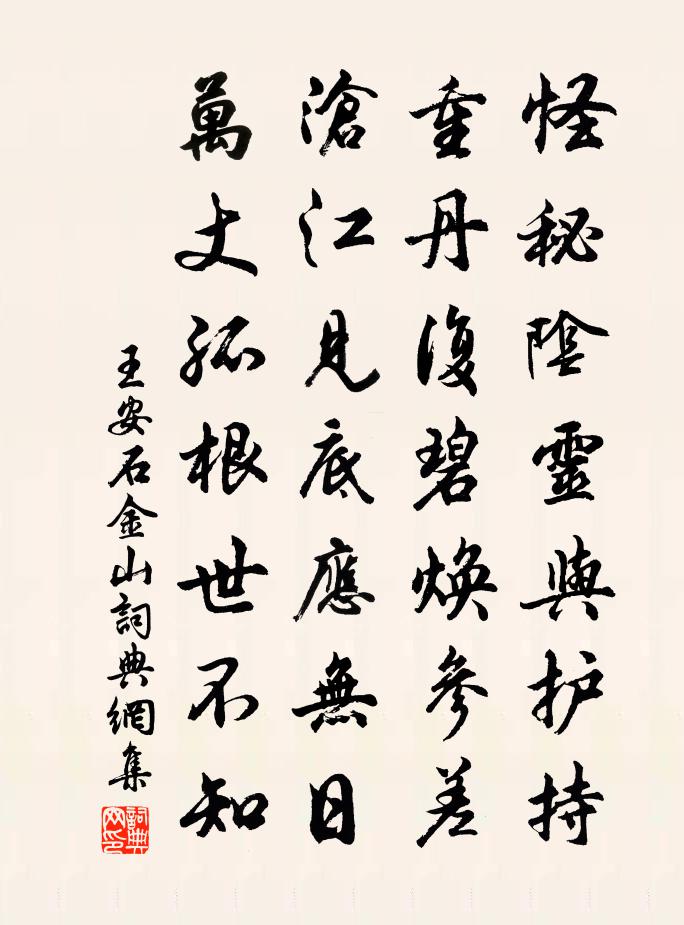 怪秘陰靈與护持
重丹復碧煥參差
滄江見底應無日
萬丈孤根世不知
王安石金山詞典網集
詞典网印